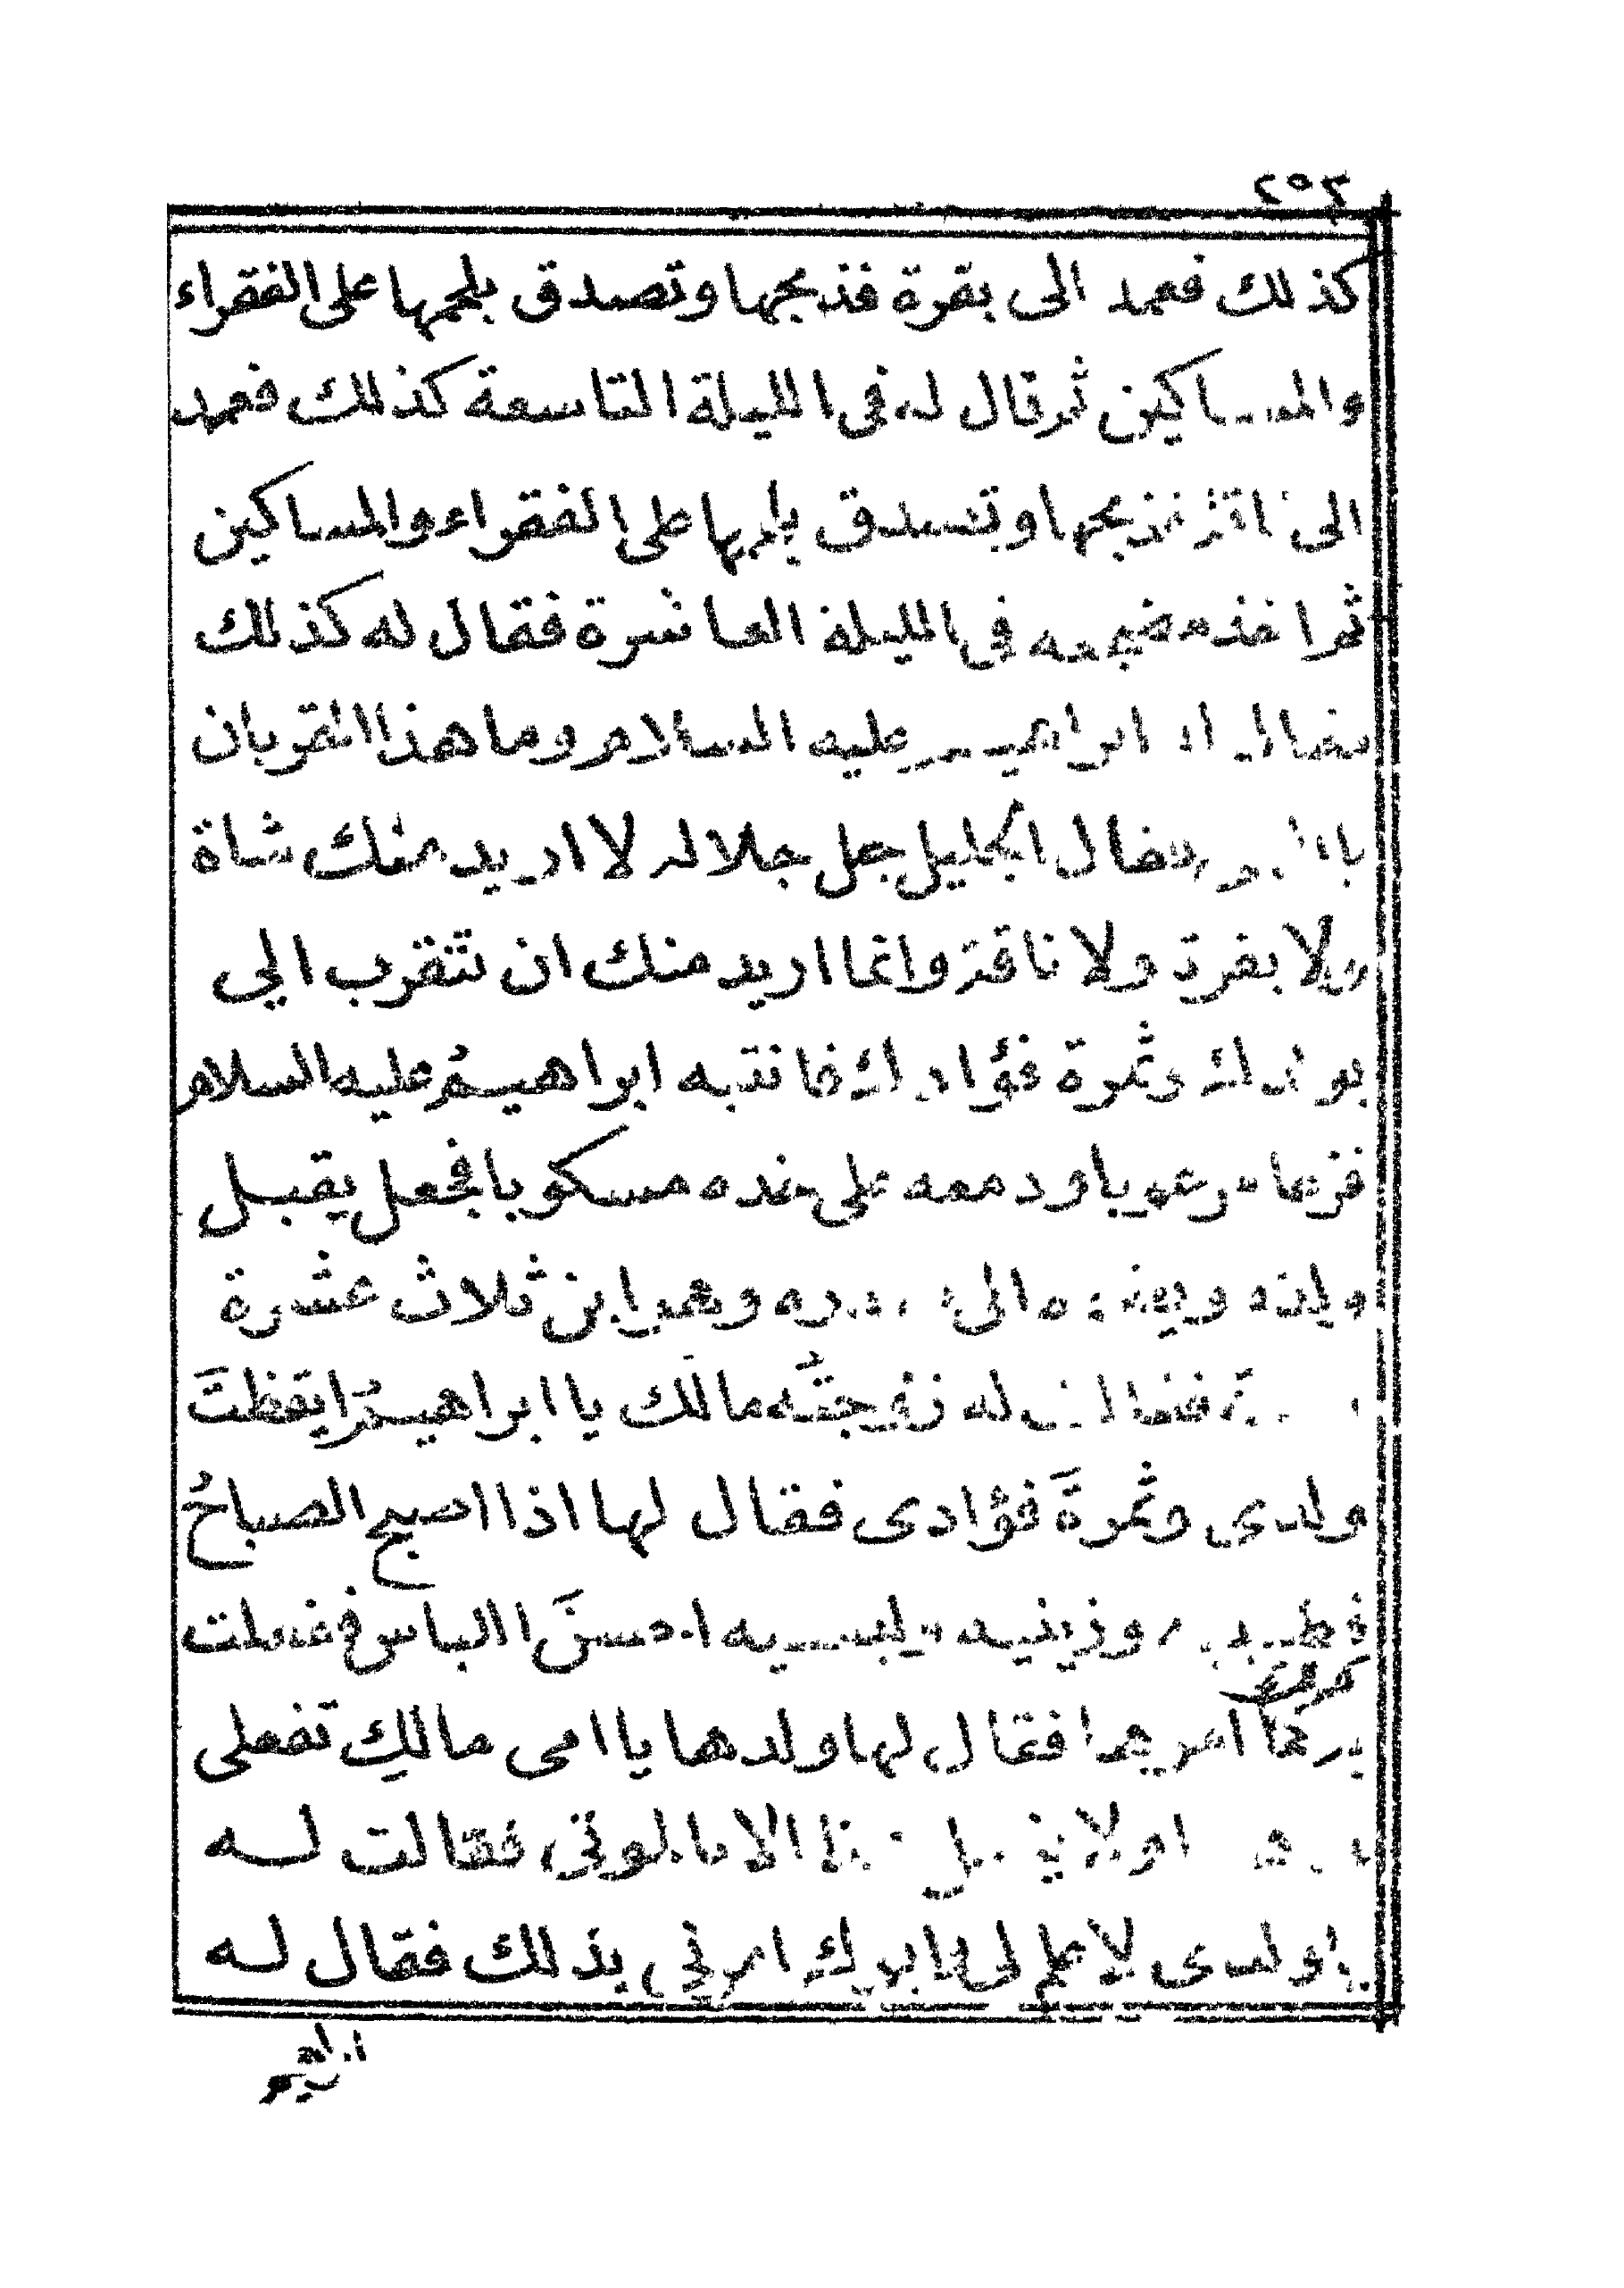 كذلك فعمد الى بقرة فذبحها وتصدق بلحمها على الفقراء
والمساكين ثم قال له فى الليلة التاسعة كذلك فعمد
الى ناقة فذبحها وتصدق بلحمها على الفقراء والمساكين
ثم اخذ مضجعه فى الليلة العاشرة فقال له كذلك
فقال له ابراهيم عليه السلام وما هذا القربان
فقال الجليل جل جلاله لا اريد منك شاة
ولا بقرة ولا ناقة وانما اريد منك ان تتقرب الي
بولدك وثمرة فؤادك فانتبه ابراهيم عليه السلام
فزعا مرعوبا ودمعه على خده مسكوبا فجعل يقبل
ولده ويضمه الى صدره وهو ابن ثلاث عشرة
فقالت له زوجته مالك يا ابراهيم ايقظت
ولدى وثمرة فؤادى فقال لها اذا اصبح الصباح
وزينيه ولبسيه احسن اللباس ففعلت
امرها فقال لها ولدها يا امى مالك تفعلى
فقالت له
يا ولدى لا علم لى ابوك امرنى بذلك فقال له